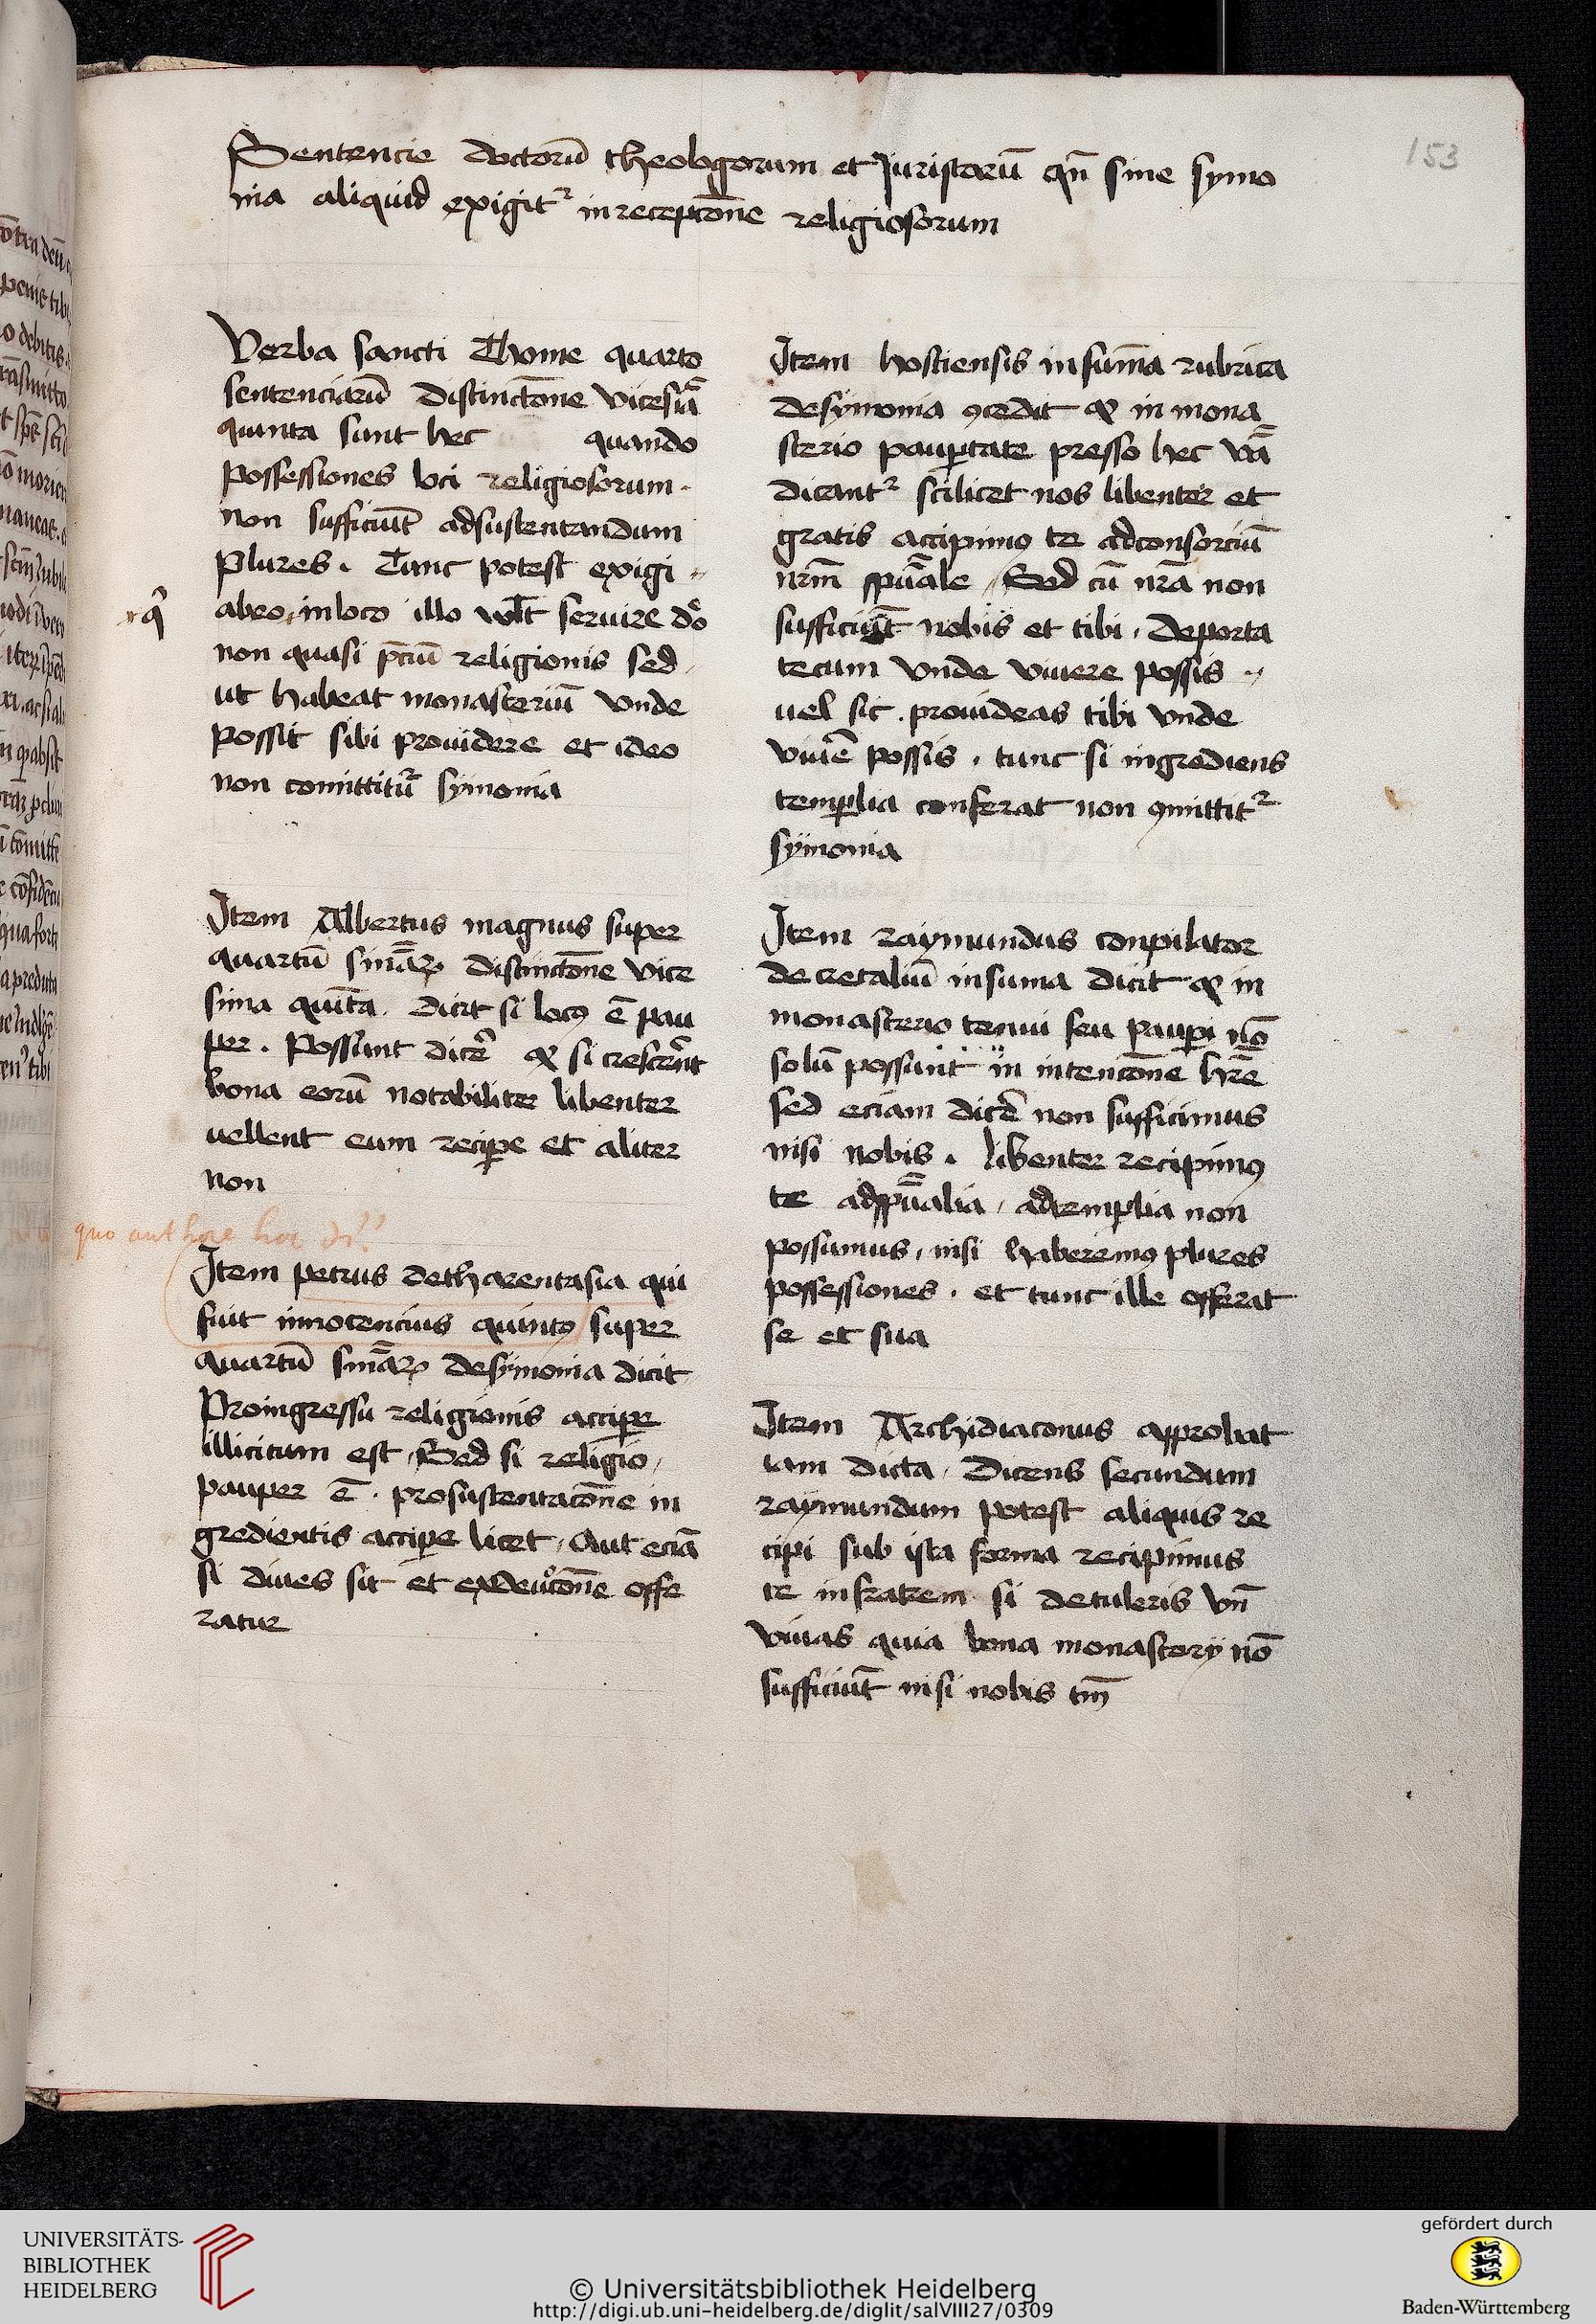 153
Sentencie doctorū theologorum et Juristarū qn̄ sine symo
nia aliquid exigit᷑ in recepcōne religiosorum
Verba sancti Thome quarto
sentenciarū distinctōne vicesīa
quinta sunt hec quando
possessiones loci religiosorum
non sufficiūt ad sustentandum
plures . Tunc potest exigi
ab eo in loco illo vult seruire dō
qͥ
non quasi p̄ciū religionis sed
ut habeat monasteriū vnde
possit sibi prouidere et ideo
non comittitu᷑ symonia
Item Albertus magnus super
quartū sn̄iaꝝ distinctōne vice
sima quīta . dicit si locꝰ ē pau
per . Possunt dicē ꝙ si crescerēt
bona eorū notabiliter libenter
uellent eum recipe et aliter
non
quo authore hoc di??
Item petrus de tharentasia qui
fuit innocencius quintꝰ super
quartū sn̄iaꝝ de symonia dicit
Pro ingressu religionis accipe
illicitum est . Sed si religio
pauper ē . pro sustentacōne in
gredientis accipe licet . Aut eciā
si diues sit et ex deuocōne offe
ratur
Item hostiensis in suma rubrica
de symonia ꝯcedit ꝙ in mona
sterio paupertate presso hec v̄ba
dicant᷑ scilicet nos libenter et
gratis accipimꝰ te ad consorciū
nr̄m spūale . Sed cū nr̄a non
sufficiūt nobis et tibi . deporta
tecum vnde viuere possis
uel sic . prouideas tibi vnde
viuē possis . tunc si ingrediens
temporalia conferat non ꝯmittit᷑
symonia
Item raymundus conpilator
decretaliū in suma dicit ꝙ in
monasterio tenui seu paupi nō
solū possunt in intencōne hr̄e
sed eciam dicē non sufficimus
nisi nobis . libenter recipimꝰ
te ad spūalia , ad temporalia non
possumus , nisi haberemꝰ plures
possessiones . et tunc ille offerat
se et sua
Item Archidiaconus approbat
iam dicta , dicens secundum
raymundum potest aliquis re
cipi sub ista forma recipimus
te in fratrem si detuleris vn̄
viuas quia bona monasterij nō
sufficiūt nisi nobis tm̄
UNIVERSITÄTS-
BIBLIOTHEK
HEIDELBERG
© Universitätsbibliothek Heidelberg
http://digi.ub.uni-heidelberg.de/diglit/salVIII27/0309
gefördert durch
Baden-Württemberg